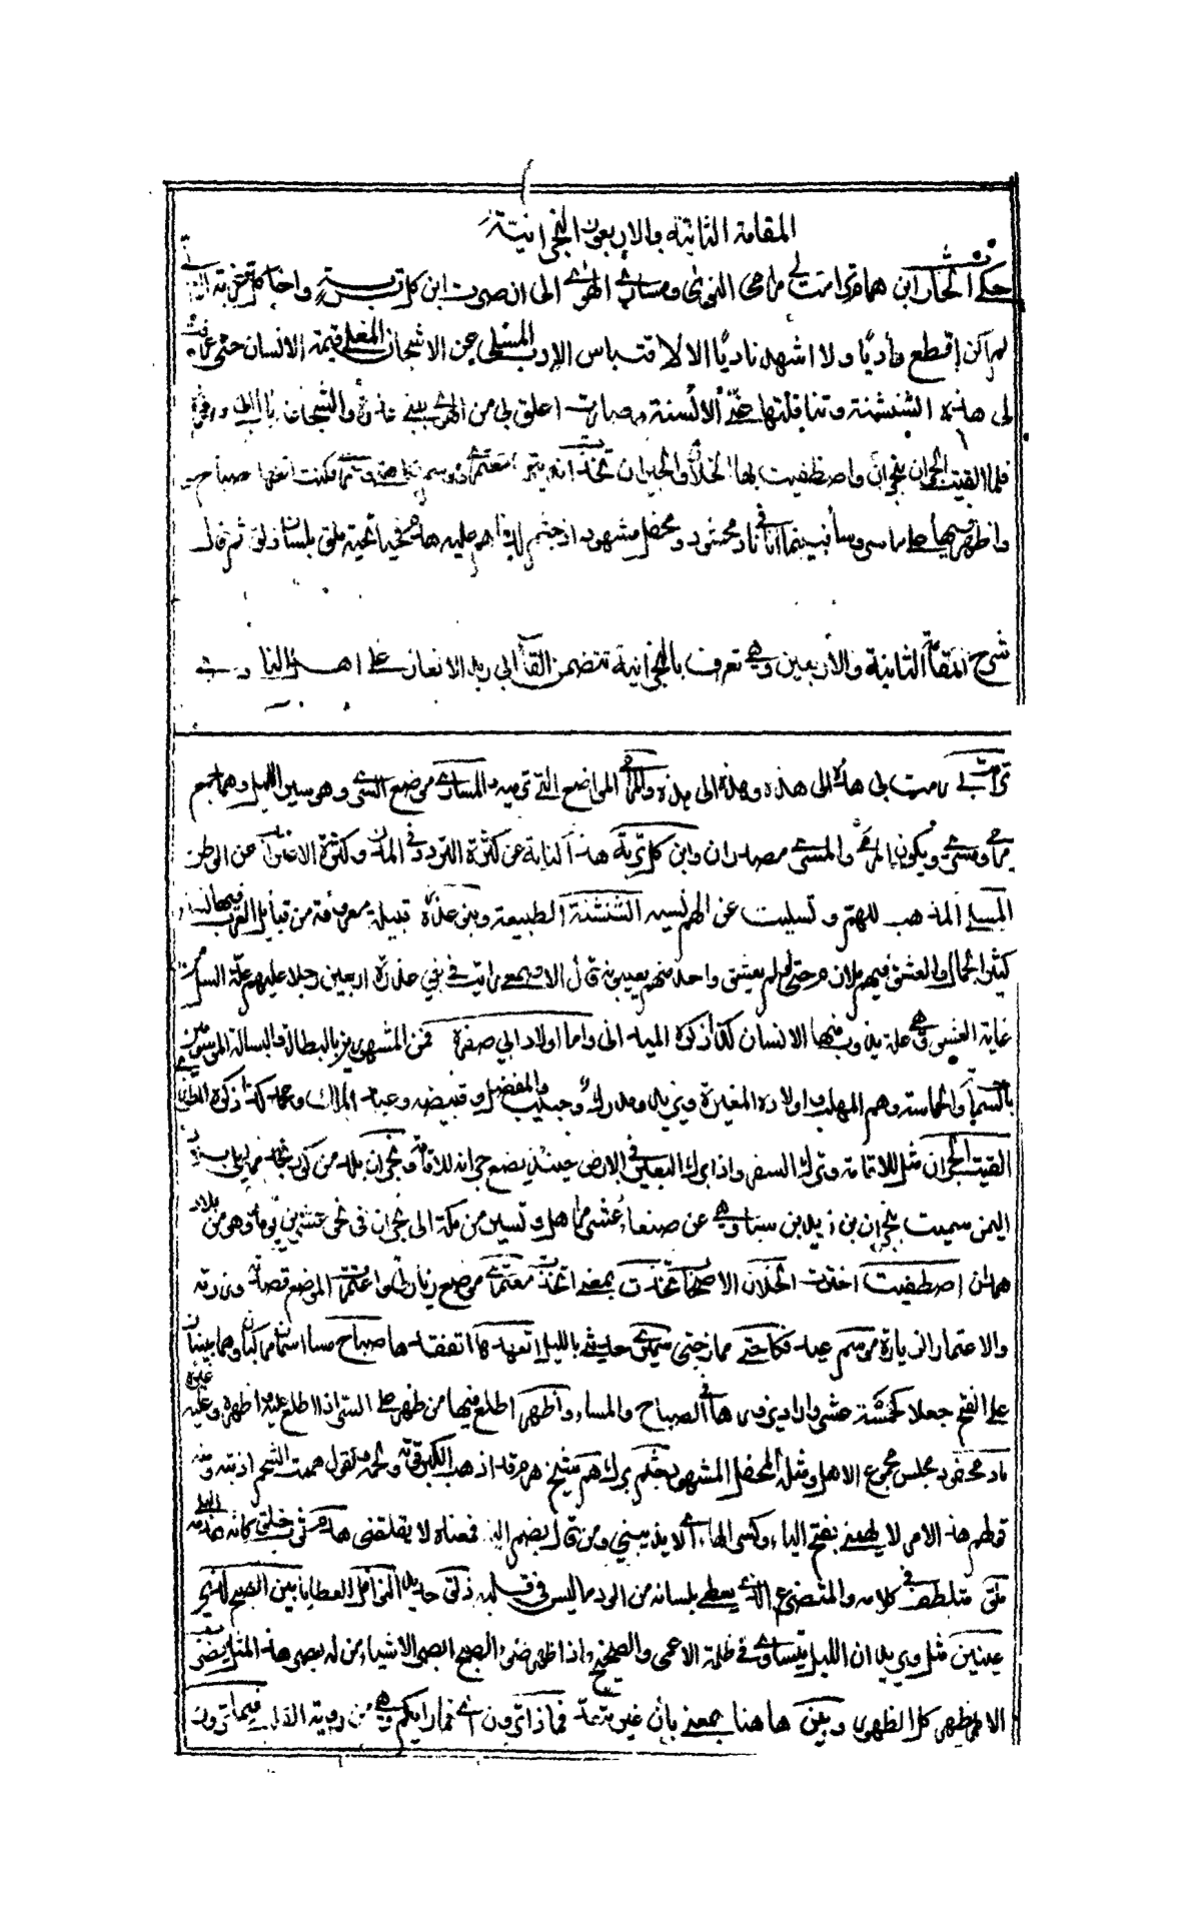 المقامة الثانية والاربعون النجرانية
حكى الحارث ابن همام قال ترامت بي مرامي النوى ومساري الهوى الى ان صرت ابن كل تربة واخا كل غربة الا اني
لم اكن اقطع واديًا ولا اشهد ناديًا الا لاقتباس الادب المسلي عن الاشجان المغلي قيمة الانسان حتى عرفت
لي هذه الشنشنة وتناقلتها عني الالسنة وصارت اعلق بي من الهوى ببني عذرة والشجاعة بآل ابي صفرة
فلما القيت الجران بنجران واصطفيت بها الخلان والجيران تخذت انديتها معتمري وموسم فكاهتي وسمري فكنت اتعهدها صباح مساء
واظهر فيها على ما سر وساء فبينما انا في ناد محشود ومحفل مشهود اذ جثم لدينا هم عليه هدم فحيا تحية ملق بلسان ذلق ثم قال
شرح المقامة الثانية والأربعين وهي تعرف بالنجرانية تتضمن القا ابي زيد الالغاز على اهل النادي
ترامت بي رمت بي هذه الى هذه وهذه الى هذه والمرامي المواضع التي ترميه والمساري موضع السرى وهو سير الليل وهما جمع
مرمى ومسرى ويكون المرمى والمسرى مصدران وابن كل تربة هذا كناية عن كثرة التردد في المدن وكثرة الاغتراب عن الوطن
المسلي المذهب للهم وتسليت عن الهم نسيته الشنشنة الطبيعة وبنو عذرة قبيلة معروفة من قبايل العرب فيها النساء
كثير الجمال والعشق فيهم ملازم حتى لو لم يعشق واحد منهم يعيبونه قال الاصمعي رايت في بني عذرة اربعين رجلا عليهم علة السل
غاية العشق وهي علة يذوب فيها الانسان كذا ذكره الميداني واما اولاد ابي صفرة فمن المشهورين بالبطالة والبسالة الموسومين
بالسماحة والحماسة وهم المهلب واولاده المغيرة ويزيد ومدرك وحبيب والمفضل وقبيصة وعبد الملك ومحمد كذا ذكره المطرزي
القيت الجران مثل للاقامة وترك السفر واذا برك البعير في الارض حينئذ يضع جرانه للاقامة ونجران بلدة من كور نجد مما يلي
اليمن سميت بنجران بن زيد بن سبا وهي عن صنعاء عشر مراحل وتسير من مكة الى نجران في نحو عشرين يوما وهو من بلاد
همدان اصطفيت اخترت الخلان الاصحاب تخذت بمعنى اتخذت معتمري موضع زيارتي واعتمرت الموضع قصدته وزرته
والاعتمار الزيارة موسم عيد فكاهتي ممازحتي سمري حديثي بالليل اتعهدها اتفقدها صباح مسا اسمان مركبان وهما مبنيان
على الفتح جعلا كخمسة عشر والمراد يزورها في الصباح والمساء واظهر اطلع فيها من ظهر على الشي اذا اطلع عليه اظهره وغيره
ناد محشود مجلس مجموع الاهل ومثله المحفل المشهود جثم برك هم شيخ هرم قد اذهب الكبر قوته ولحمه تقول هممت الشحم اذبته ومنه
قولهم هذا الامر لا يهمني بفتح الياء وكسر الهاء اي لا يذيبني ومن قال بضم اليا فمعناه لا يقلقني هدم ثوب خلق كانه هدمه البلى
ملق متلطف في كلامه والمتضرع الذي يعطي بلسانه من الود ما ليس في قلبه ذلق حديد النوافل العطايا بين الصبح لذي
عينين مثل يريد ان الليل يتساوى في ظلمة الاعمى والصحيح واذا ظهر ضوء الصبح ابصر الاشياء من له بصر هذا المثل يضرب
الامر ظهر كل الظهور وبين هاهنا بمعنى بان غير متعد فماذا ترون اي فما رايكم وهي من روية القلب فيما ترون